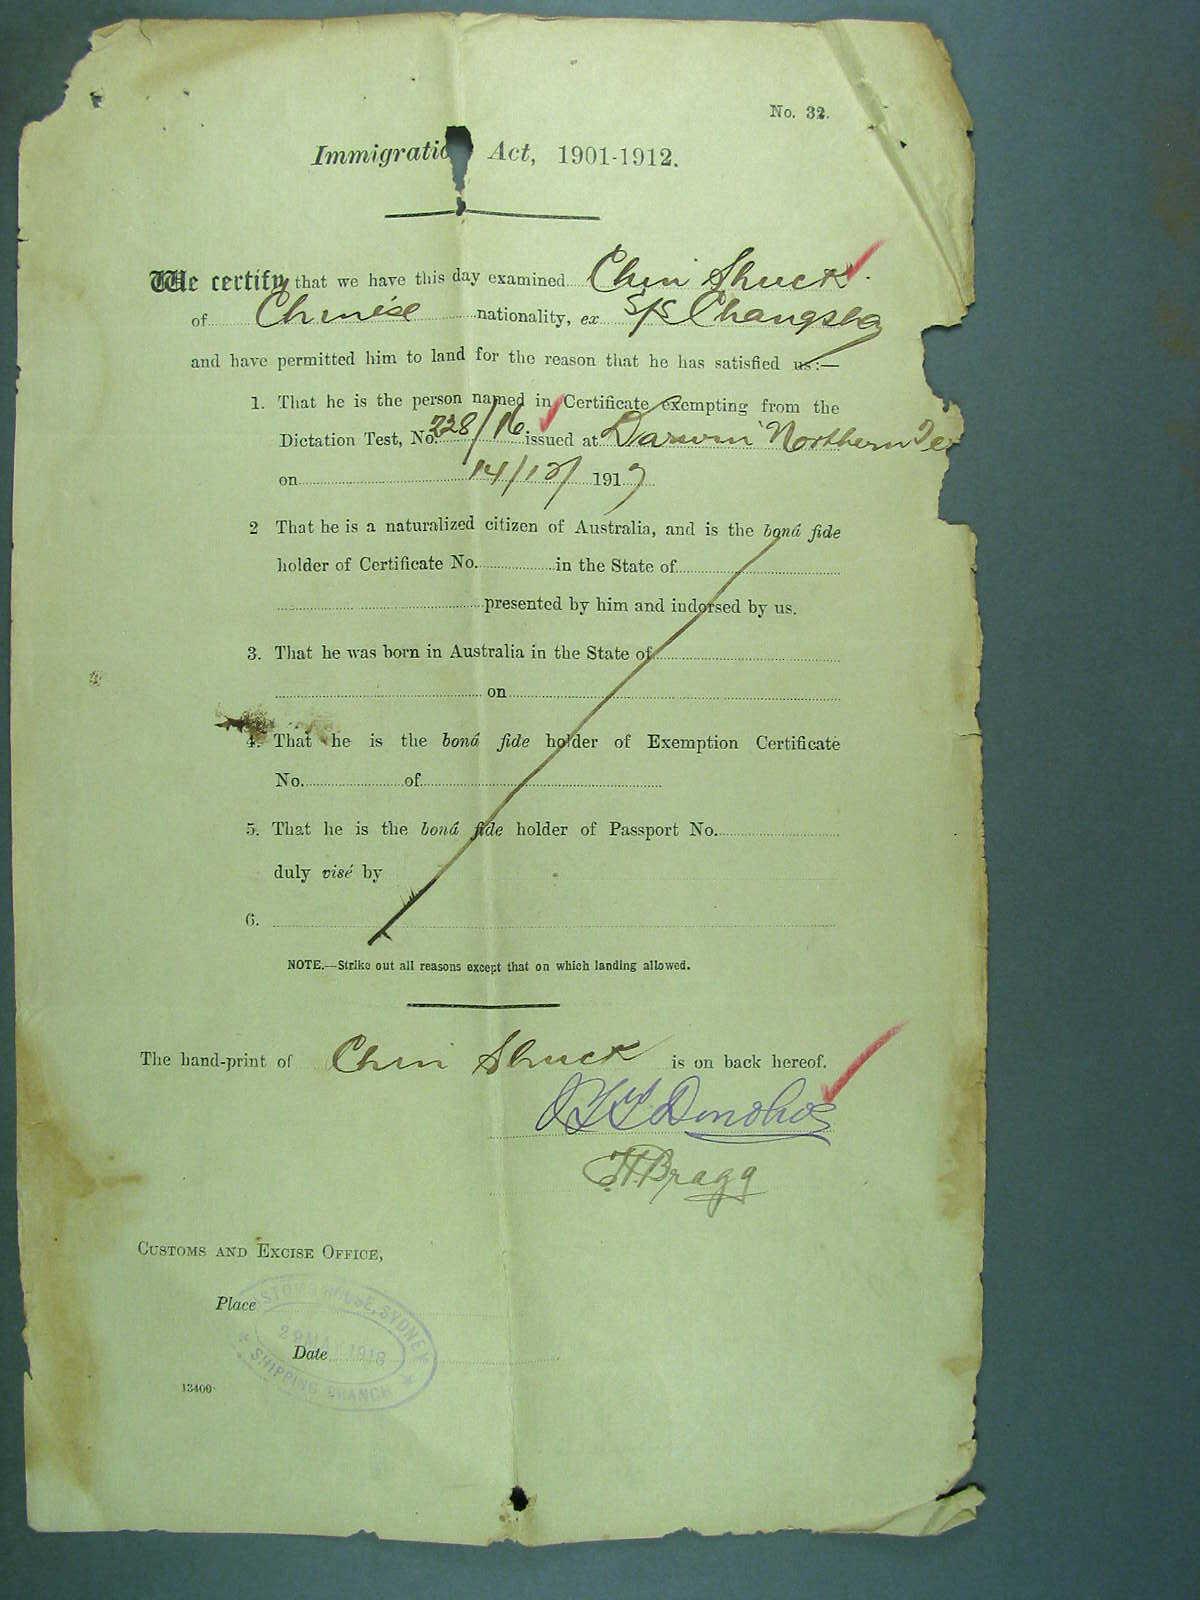 No. 32.
Immigratio Act, 1901-1912.
We certify that we have this day examined Chin Shuck
of Chinese nationality, ex S/S Changsha
and have permitted him to land for the reason that he has satisfied us:—
1. That he is the person named in Certificate exempting from the
Dictation Test, No. 228/16 issued at Darwin Northern Te
on 14/12/ 1917
2 That he is a naturalized citizen of Australia, and is the boná fide
holder of Certificate No. in the State of
presented by him and indorsed by us.
3. That he was born in Australia in the State of
on
4. That he is the boná fide holder of Exemption Certificate
No. of
5. That he is the boná fide holder of Passport No.
duly visé by
6.
NOTE.—Strike out all reasons except that on which landing allowed.
The hand-print of Chin Shuck is on back hereof.
Donohoe
H Bragg
CUSTOMS AND EXCISE OFFICE,
Place
CUSTOMS HOUSE, SYDNEY
Date
1918
SHIPPING BRANCH
13400